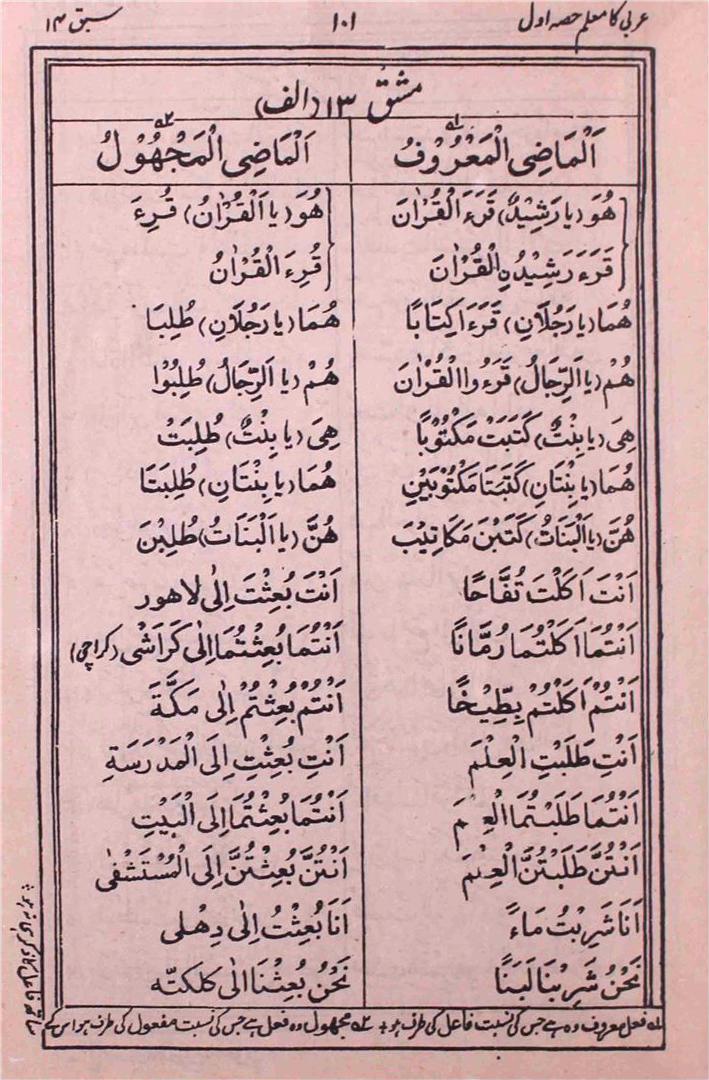 عربی کا معلم حصہ اول ۱۰۱ سبق ۱۴
مشق ۱۳ (الف)
اَلْمَاضِی الْمَعْرُوْفُ ؎۱ اَلْمَاضِی الْمَجْهُوْلُ ؎۲
هُوَ (یا رَشِیْدٌ) قَرَءَ الْقُرْاٰنَ هُوَ (یا اَلْقُرْاٰنُ) قُرِءَ
قَرَءَ رَشِیْدُنِ الْقُرْاٰنَ قُرِءَ الْقُرْاٰنُ
هُمَا (یا رَجُلَانِ) قَرَءَا کِتَابًا هُمَا (یا رَجُلَانِ) طُلِبَا
هُمْ (یا اَلرِّجَالُ) قَرَءُوا الْقُرْاٰنَ هُمْ (یا اَلرِّجَالُ) طُلِبُوْا
هِیَ (یا بِنْتٌ) کَتَبَتْ مَکْتُوْبًا هِیَ (یا بِنْتٌ) طُلِبَتْ
هُمَا (یا بِنْتَانِ) کَتَبَتَا مَکْتُوْبَیْنِ هُمَا (یا بِنْتَانِ) طُلِبَتَا
هُنَّ (یا اَلْبَنَاتُ) کَتَبْنَ مَکَاتِیْبَ هُنَّ (یا اَلْبَنَاتُ) طُلِبْنَ
اَنْتَ اَکَلْتَ تُفَّاحًا اَنْتَ بُعِثْتَ اِلٰی لاهور
اَنْتُمَا اَکَلْتُمَا رُمَّانًا اَنْتُمَا بُعِثْتُمَا اِلٰی کَرَاشْی (کراچی)
اَنْتُمْ اَکَلْتُمْ بِطِّیْخًا اَنْتُمْ بُعِثْتُمْ اِلٰی مَکَّةَ
اَنْتِ طَلَبْتِ الْعِلْمَ اَنْتِ بُعِثْتِ اِلَی الْمَدْرَسَةِ
اَنْتُمَا طَلَبْتُمَا الْعِلْمَ اَنْتُمَا بُعِثْتُمَا اِلَی الْبَیْتِ
اَنْتُنَّ طَلَبْتُنَّ الْعِلْمَ اَنْتُنَّ بُعِثْتُنَّ اِلَی الْمُسْتَشْفٰی
اَنَا شَرِبْتُ مَاءً اَنَا بُعِثْتُ اِلٰی دِهْلی
نَحْنُ شَرِبْنَا لَبَنًا نَحْنُ بُعِثْنَا اِلٰی کلکتّه
؎۱ فعل معروف وہ ہے جس کی نسبت فاعل کی طرف ہو + ؎۲ مجھول وہ فعل ہے جس کی نسبت مفعول کی طرف ہو اس کے